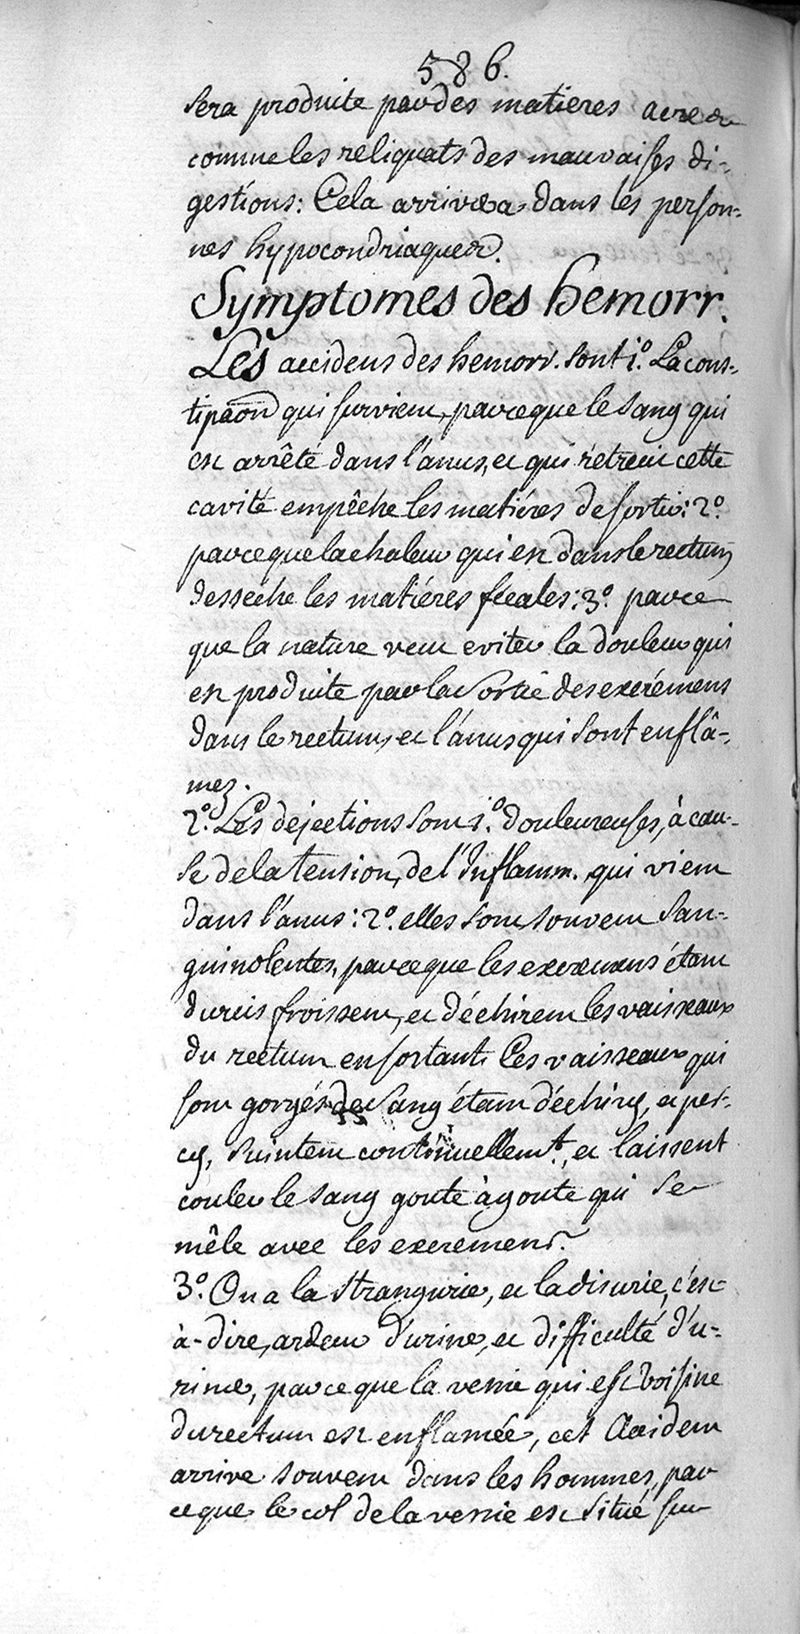 586.
sera produite par des matieres acres
comme les reliquats des mauvaises di-
gestions: Cela arrivera dans les person-
nes hypocondriaques.
Symptomes des hemorr.
Les accidens des hemorr. sont 1.° La cons-
tipaõn qui survient, parceque le sang qui
est arrêté dans l'anus, et qui rétrecit cette
cavité empêche les matiéres de sortir: 2.°
parceque la chaleur qui est dans le rectum
desseche les matiéres fécales: 3.° parce
que la nature veut eviter la douleur qui
est produite par la sortie des excrémens
dans le rectum, et l'anus qui sont enflâ-
mez.
2.° Les dejections sont 1.° douleureuses, à cau-
se de la tension, de l'Inflamm. qui vient
dans l'anus: 2.° elles sont souvent san-
guinolentes, parceque les excremens étant
durcis froissent, et déchirent les vaisseaux
du rectum en sortant. Ces vaisseaux qui
sont gorgés de sang étant déchirés, et per-
cés, suintent continuellem.t, et laissent
couler le sang goute à goute qui se
mêle avec les excremens.
3.° On a la strangurie, et la disurie, c'est
à-dire, ardeur d'urine, et difficulté d'u-
rine, parceque la vessie qui est voisine
du rectum est enflamée, cet Accident
arrive souvent dans les hommes, par
ceque le col de la vessie est situé sur